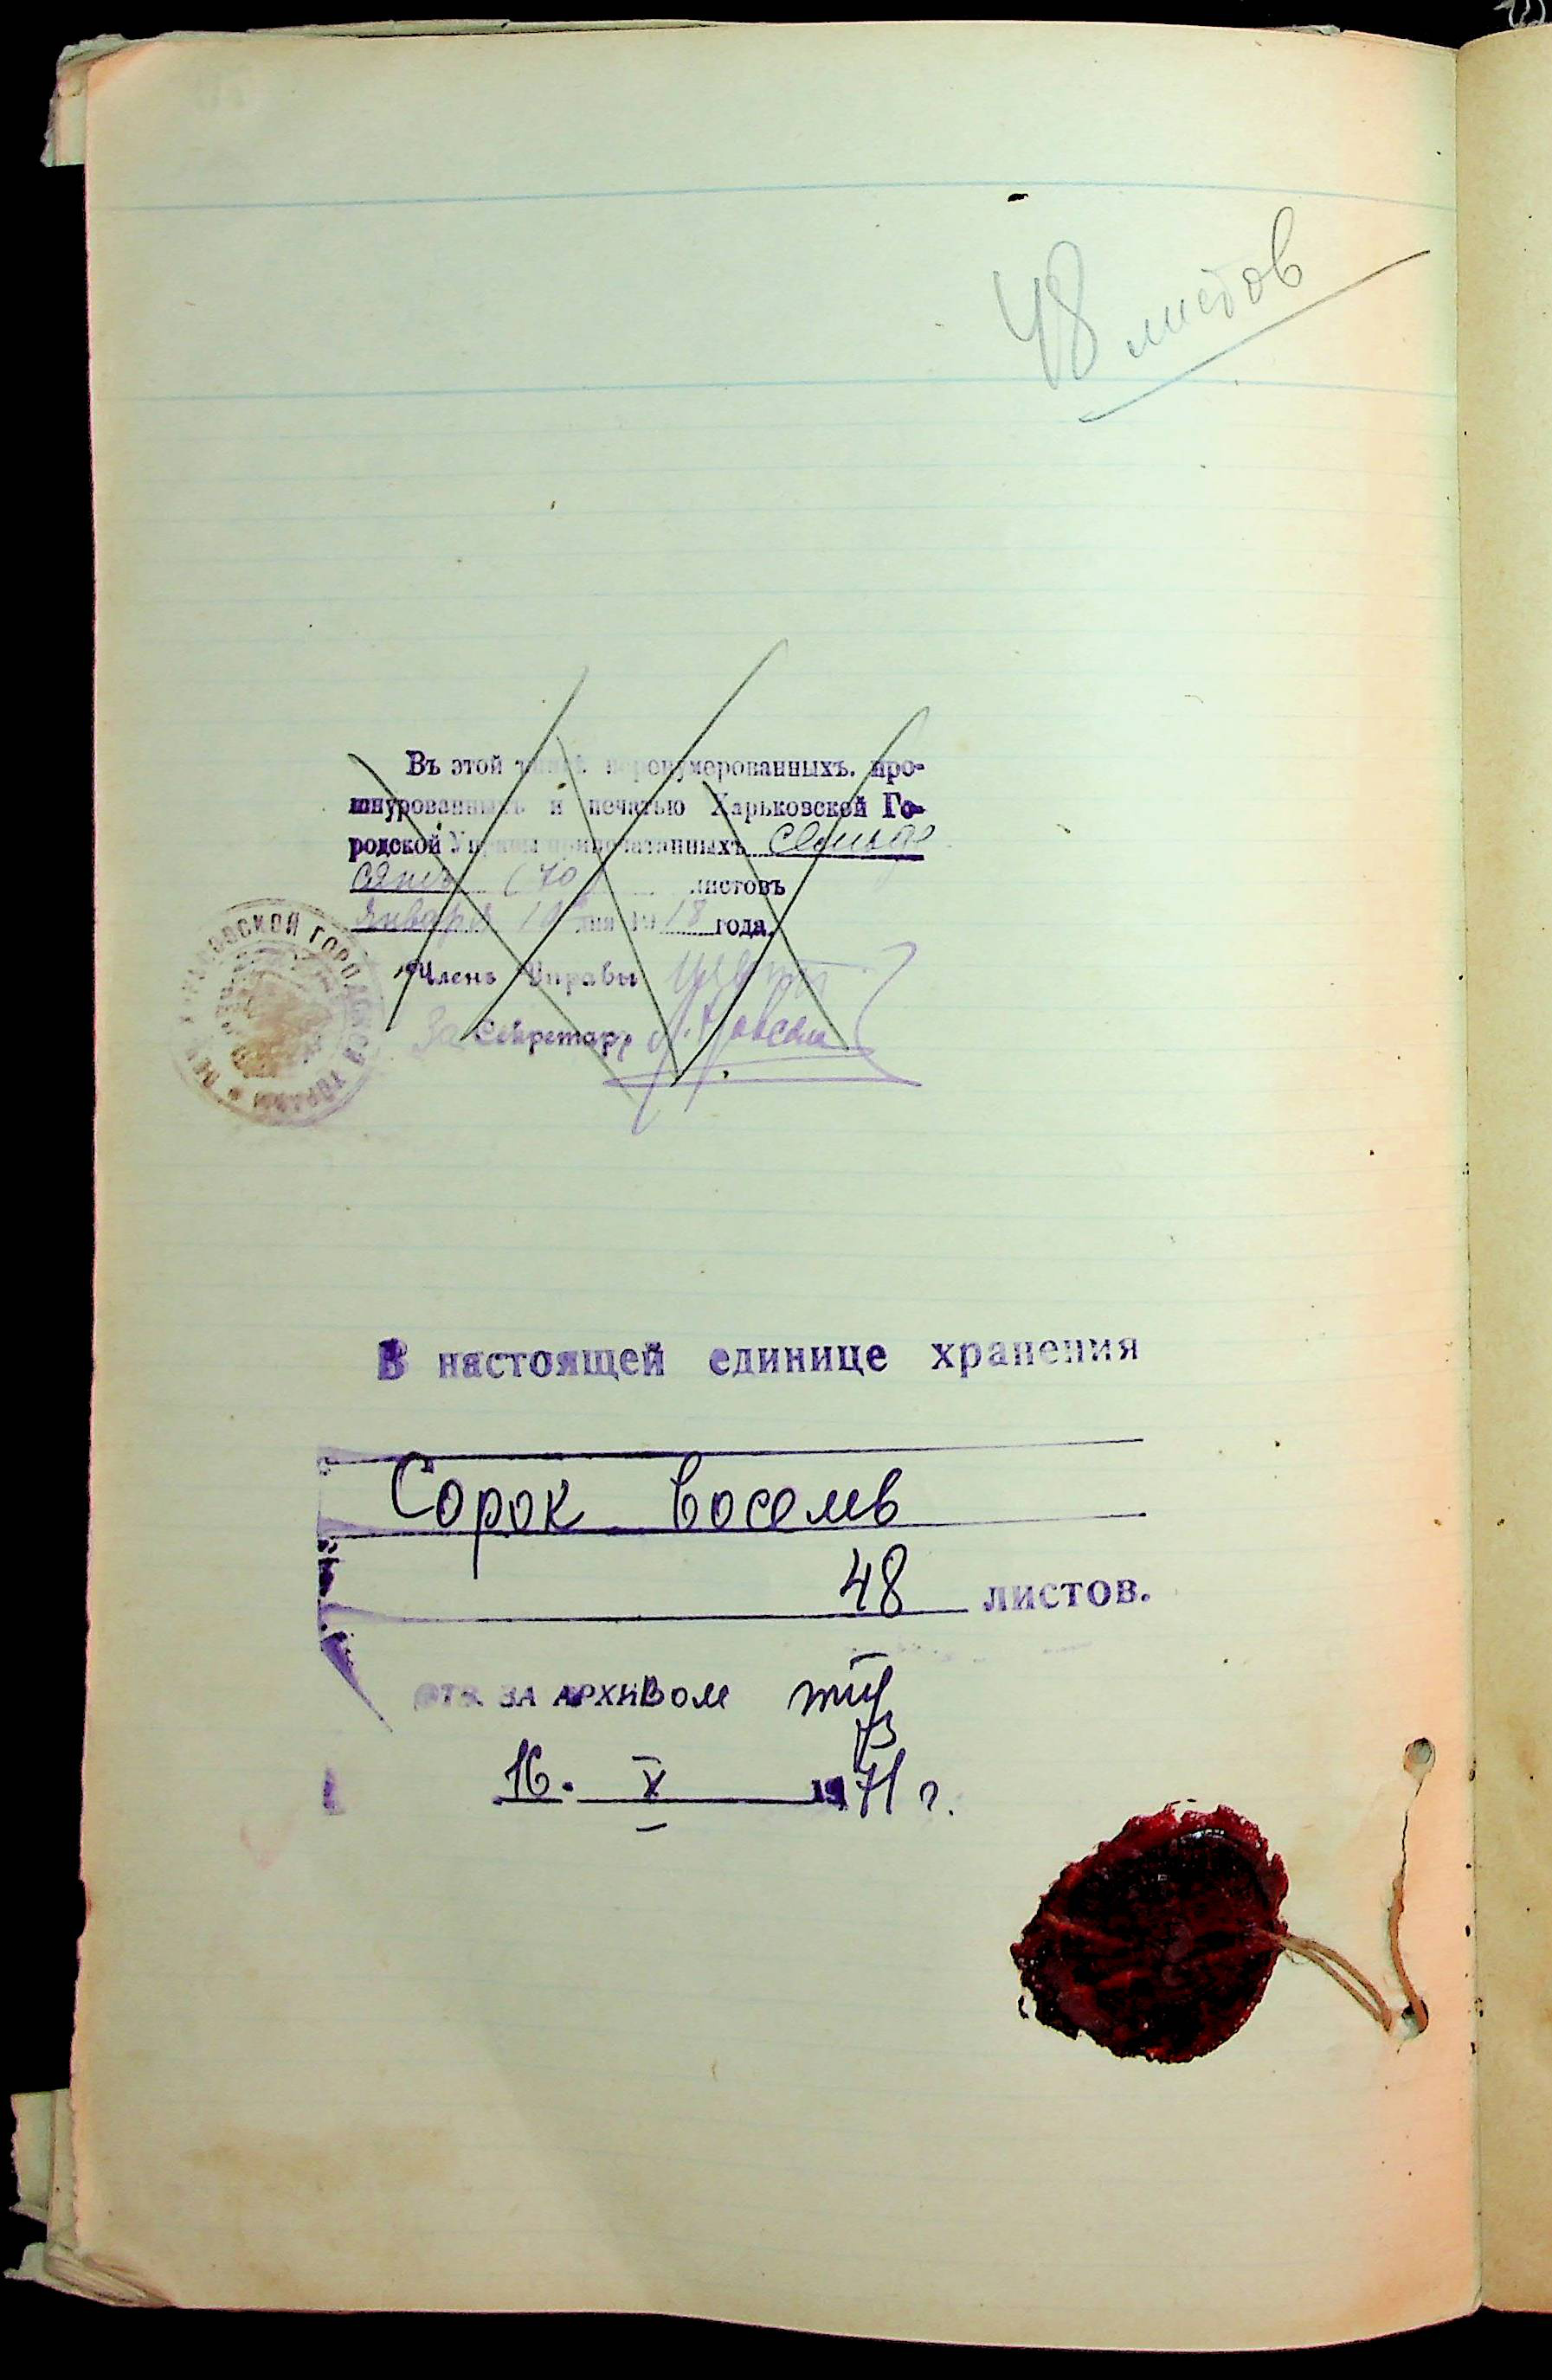 48 листов
Въ этой перенумерованныхъ. про-
шнурованныхъ и печатью Харьковской Го-
родской Управы припечатанныхъ семьде
сятъ (70) листовъ
Января 10 дня 1918 года.
Членъ Управы
За Секретаря
ГОРОДСКОЙ
УПРАВЫ
В настоящей единице хранения
Сорок восемь
48 листов.
ОТВ. ЗА АРХИВОМ
16. X 1971 г.